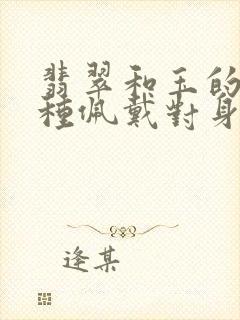 翡翠和玉的
種佩戴對身
逢某